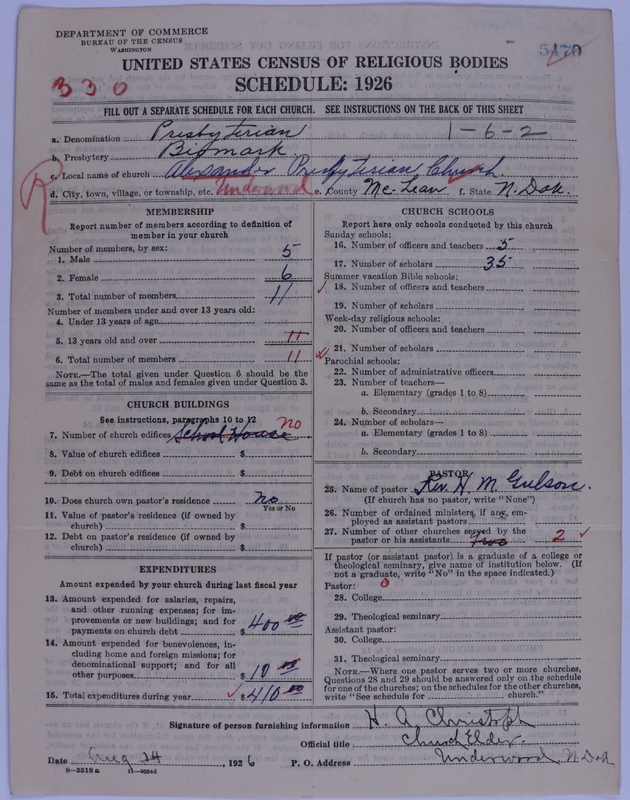 DEPARTMENT OF COMMERCE
BUREAU OF THE CENSUS
WASHINGTON
5470
UNITED STATES CENSUS OF RELIGIOUS BODIES
330
SCHEDULE: 1926
FILL OUT A SEPARATE SCHEDULE FOR EACH CHURCH. SEE INSTRUCTIONS ON THE BACK OF THIS SHEET
a. Denomination Presbyterian 1-6-2
b. Presbytery Bismark
c. Local name of church Alexander Presbyterian Church
R
d. City, town, village, or township, etc. Underwood e. County Mc-Lean f. State N. Dak.
MEMBERSHIP
Report number of members according to definition of
member in your church
Number of members, by sex:
1. Male 5
2. Female 6
3. Total number of members 11
Number of members under and over 13 years old:
4. Under 13 years of age
5. 13 years old and over 11
6. Total number of members 11
NOTE.—The total given under Question 6 should be
same as the total of males and females given under Question 3.
CHURCH BUILDINGS
See instructions, paragraphs 10 to 12
7. Number of church edifices School House no
8. Value of church edifices $
9. Debt on church edifices $
10. Does church own pastor's residence no
Yes or No
11. Value of pastor's residence (if owned by
church) $
12. Debt on pastor's residence (if owned by
church) $
EXPENDITURES
Amount expended by your church during last fiscal year
13. Amount expended for salaries, repairs,
and other running expenses; for im-
provements or new buildings; and for
payments on church debt $ 400 00
14. Amount expended for benevolences, in-
cluding home and foreign missions; for
denominational support; and for all
other purposes $ 10 00
15. Total expenditures during year $ 410 00
CHURCH SCHOOLS
Report here only schools conducted by this church
Sunday schools:
16. Number of officers and teachers 5
17. Number of scholars 35
Summer vacation Bible schools:
18. Number of officers and teachers
19. Number of scholars
Week-day religious schools:
20. Number of officers and teachers
21. Number of scholars
Parochial schools:
22. Number of administrative officers
23. Number of teachers—
a. Elementary (grades 1 to 8)
b. Secondary
24. Number of scholars—
a. Elementary (grades 1 to 8)
b. Secondary
PASTOR
25. Name of pastor Rev. H. M. Gulson.
(If church has no pastor, write "None")
26. Number of ordained ministers, if any, em-
ployed as assistant pastors
27. Number of other churches served by the
pastor or his assistants Two 2
If pastor (or assistant pastor) is a graduate of a college or
theological seminary, give name of institution below. (If
not a graduate, write "No" in the space indicated.)
Pastor: 0
28. College
29. Theological seminary
Assistant pastor:
30. College
31. Theological seminary
NOTE.—Where one pastor serves two or more churches,
Questions 28 and 29 should be answered only on the schedule
for one of the churches; on the schedules for the other churches,
write "See schedule for church."
Signature of person furnishing information H. A. Christoph
Official title Church Elder.
Date Aug 24 1926 P. O. Address Underwood N. Dak
8—5518 a 11—9554d